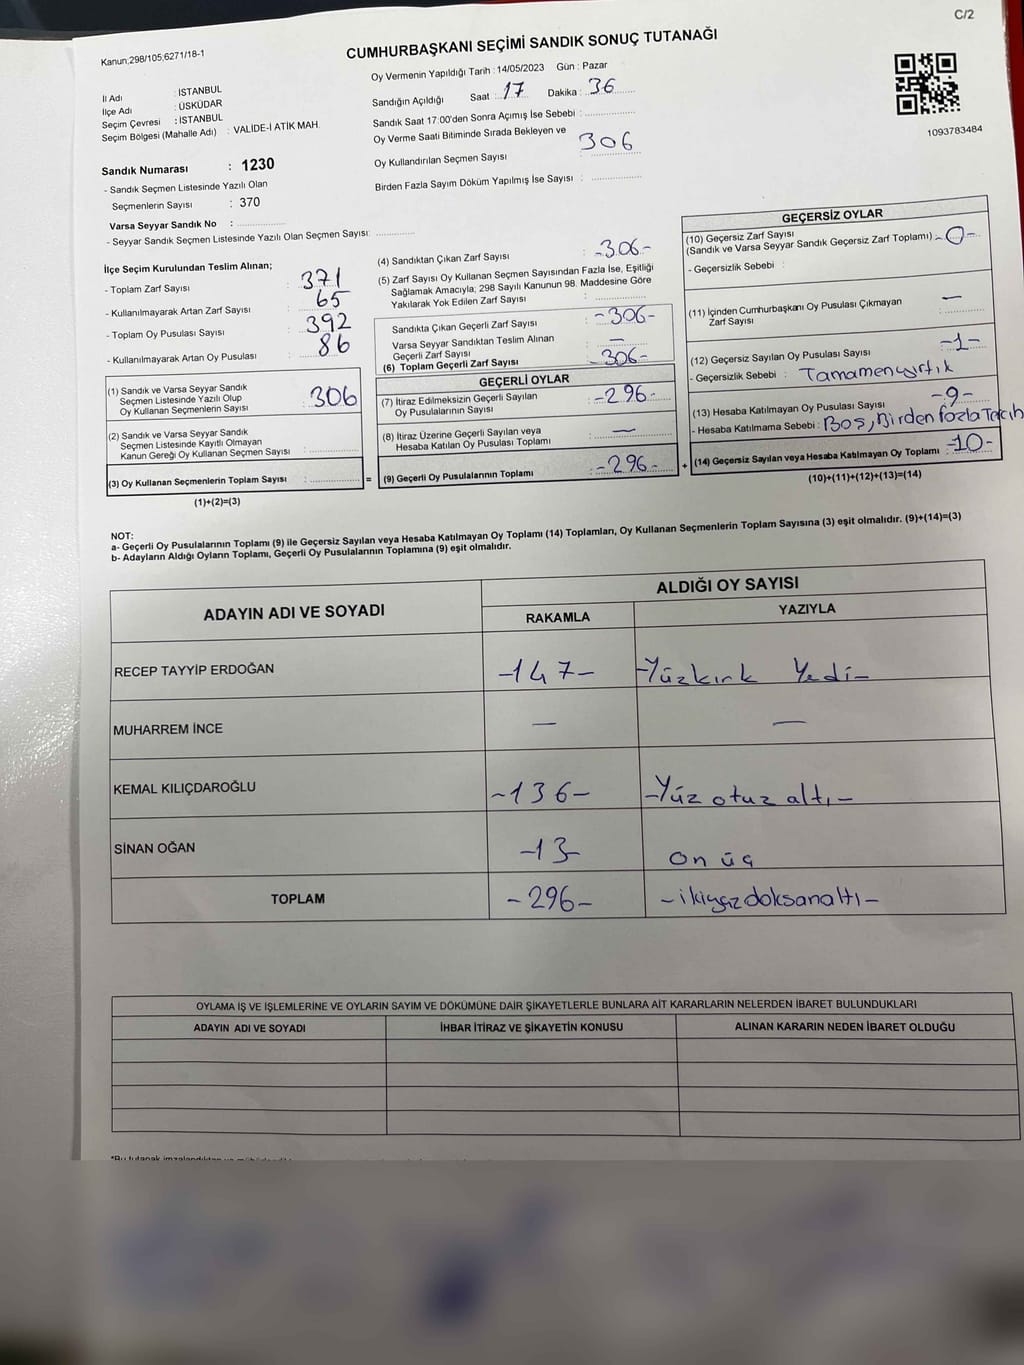 C/2
Kanun;298/105;6271/18-1
CUMHURBAŞKANI SEÇİMİ SANDIK SONUÇ TUTANAĞI
Oy Vermenin Yapıldığı Tarih : 14/05/2023 Gün : Pazar
İl Adı : İSTANBUL
İlçe Adı : ÜSKÜDAR
Seçim Çevresi : İSTANBUL
Seçim Bölgesi (Mahalle Adı) : VALİDE-İ ATİK MAH.
Sandığın Açıldığı Saat : 17 Dakika : 36
Sandık Saat 17:00'den Sonra Açımış İse Sebebi :
Oy Verme Saati Bitiminde Sırada Bekleyen ve
Oy Kullandırılan Seçmen Sayısı 306
Birden Fazla Sayım Döküm Yapılmış İse Sayısı :
1093783484
Sandık Numarası : 1230
- Sandık Seçmen Listesinde Yazılı Olan
Seçmenlerin Sayısı : 370
Varsa Seyyar Sandık No :
- Seyyar Sandık Seçmen Listesinde Yazılı Olan Seçmen Sayısı:
İlçe Seçim Kurulundan Teslim Alınan;
- Toplam Zarf Sayısı : 371
- Kullanılmayarak Artan Zarf Sayısı : 65
- Toplam Oy Pusulası Sayısı : 392
- Kullanılmayarak Artan Oy Pusulası : 86
(1) Sandık ve Varsa Seyyar Sandık
Seçmen Listesinde Yazılı Olup
Oy Kullanan Seçmenlerin Sayısı : 306
(2) Sandık ve Varsa Seyyar Sandık
Seçmen Listesinde Kayıtlı Olmayan
Kanun Gereği Oy Kullanan Seçmen Sayısı :
(3) Oy Kullanan Seçmenlerin Toplam Sayısı :
(1)+(2)=(3)
(4) Sandıktan Çıkan Zarf Sayısı : -306-
(5) Zarf Sayısı Oy Kullanan Seçmen Sayısından Fazla İse, Eşitliği
Sağlamak Amacıyla; 298 Sayılı Kanunun 98. Maddesine Göre
Yakılarak Yok Edilen Zarf Sayısı :
Sandıkta Çıkan Geçerli Zarf Sayısı : -306-
Varsa Seyyar Sandıktan Teslim Alınan
Geçerli Zarf Sayısı : —
(6) Toplam Geçerli Zarf Sayısı : -306-
GEÇERLİ OYLAR
(7) İtiraz Edilmeksizin Geçerli Sayılan
Oy Pusulalarının Sayısı : -296-
(8) İtiraz Üzerine Geçerli Sayılan veya
Hesaba Katılan Oy Pusulası Toplamı : —
= (9) Geçerli Oy Pusulalarının Toplamı : -296-
GEÇERSİZ OYLAR
(10) Geçersiz Zarf Sayısı
(Sandık ve Varsa Seyyar Sandık Geçersiz Zarf Toplamı) -0-
- Geçersizlik Sebebi :
(11) İçinden Cumhurbaşkanı Oy Pusulası Çıkmayan
Zarf Sayısı : —
(12) Geçersiz Sayılan Oy Pusulası Sayısı : -1-
- Geçersizlik Sebebi : Tamamen yırtık
(13) Hesaba Katılmayan Oy Pusulası Sayısı : -9-
- Hesaba Katılmama Sebebi : Boş, Birden fazla Tercih
+ (14) Geçersiz Sayılan veya Hesaba Katılmayan Oy Toplamı : -10-
(10)+(11)+(12)+(13)=(14)
NOT:
a- Geçerli Oy Pusulalarının Toplamı (9) ile Geçersiz Sayılan veya Hesaba Katılmayan Oy Toplamı (14) Toplamları, Oy Kullanan Seçmenlerin Toplam Sayısına (3) eşit olmalıdır. (9)+(14)=(3)
b- Adayların Aldığı Oyların Toplamı, Geçerli Oy Pusulalarının Toplamına (9) eşit olmalıdır.
ADAYIN ADI VE SOYADI ALDIĞI OY SAYISI
RAKAMLA YAZIYLA
RECEP TAYYİP ERDOĞAN -147- -Yüzkırk Yedi-
MUHARREM İNCE — —
KEMAL KILIÇDAROĞLU -136- -Yüz otuz altı-
SİNAN OĞAN -13- on üç
TOPLAM -296- -ikiyüz doksan altı-
OYLAMA İŞ VE İŞLEMLERİNE VE OYLARIN SAYIM VE DÖKÜMÜNE DAİR ŞİKAYETLERLE BUNLARA AİT KARARLARIN NELERDEN İBARET BULUNDUKLARI
ADAYIN ADI VE SOYADI İHBAR İTİRAZ VE ŞİKAYETİN KONUSU ALINAN KARARIN NEDEN İBARET OLDUĞU